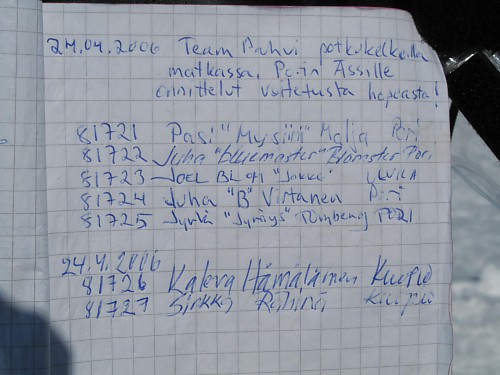 24.04.2006 Team Pahvi potkukelkoilla
matkassa, Porin Ässille
onnittelut voitetusta hopeasta!
81721 Pasi "Mysiini" Malia Pori
81722 Juha "bluemaster" Brämster Pori
81723 JOEL "Jokke" ULVILA
81724 Juha "B" Virtanen Pori
81725 Jyrki "Jyräys" PORI
24.4.2006
81726 Kaleva Hämäläinen Kuopio
81727 Sirkka Kuopio